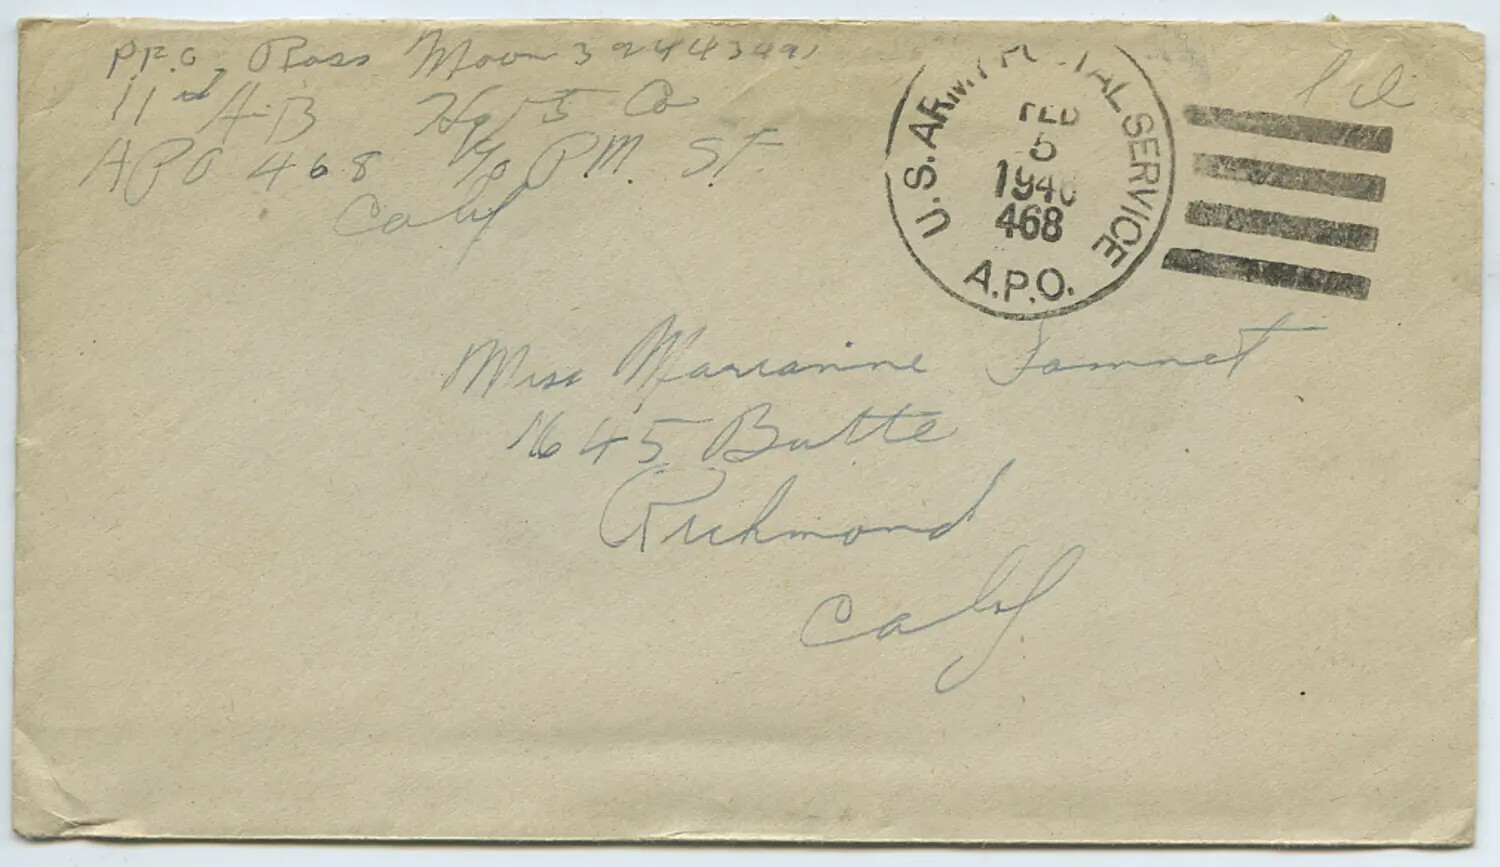 Pfc. Ross Moon 39443491
11th A-B Hq &
APO 468 c/o P.M. S.F.
Calif
U.S. ARMY POSTAL SERVICE
FEB
5
1946
468
A.P.O.
Miss Marianine
1645 Butte
Richmond
Calif